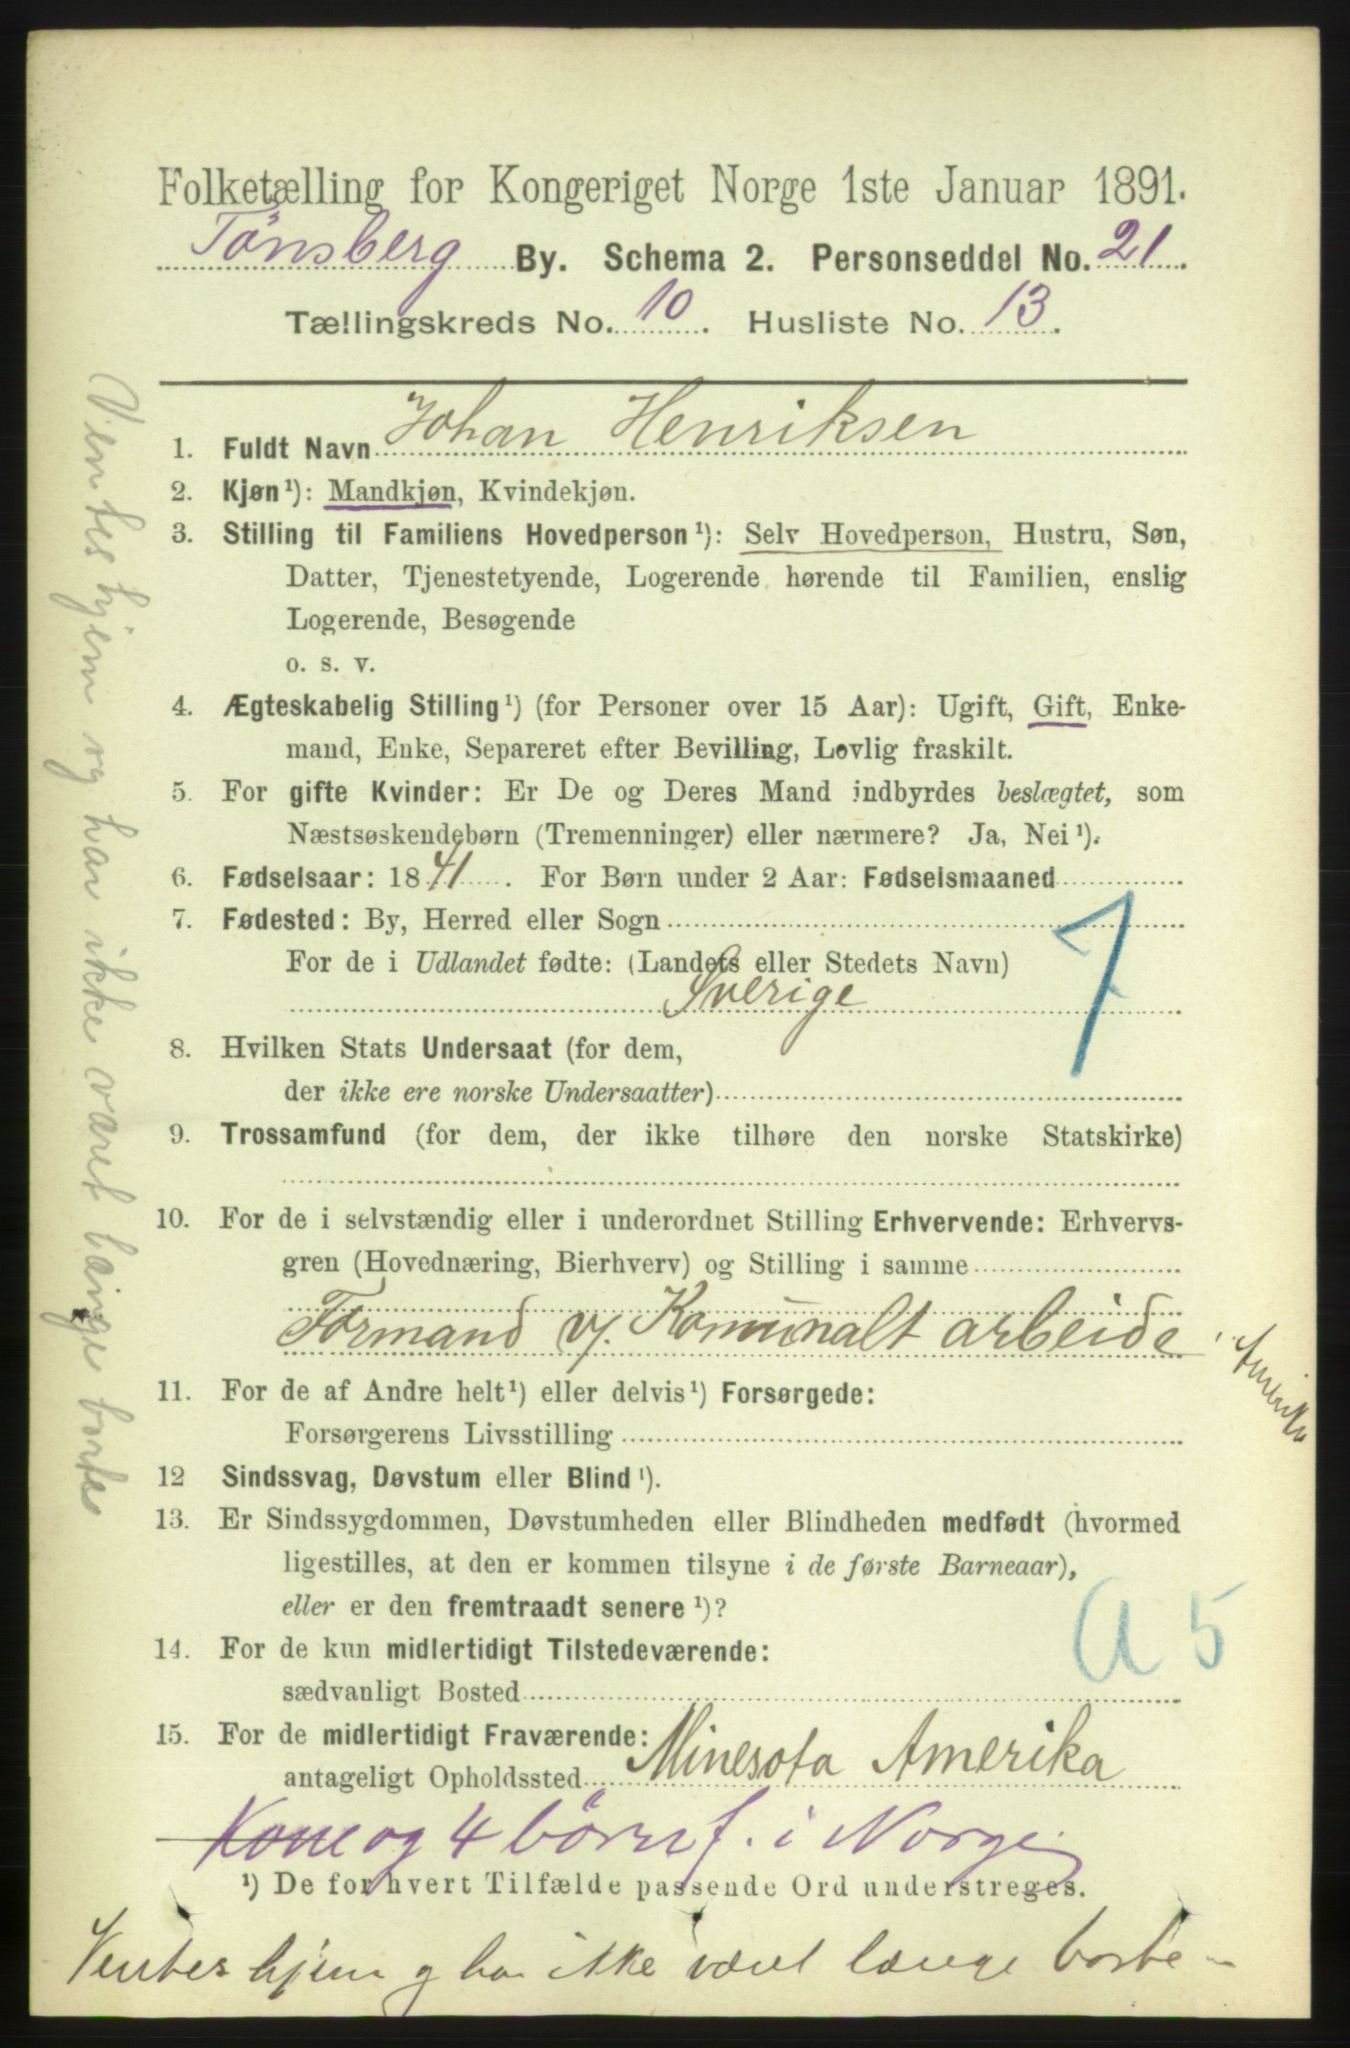 Folketælling for Kongeriget Norge 1ste Januar 1891.
Tönsberg By. Schema 2. Personseddel No. 21.
Tællingskreds No. 10. Husliste No. 13.
1. Fuldt Navn Johan Henriksen
2. Kjøn¹): Mandkjøn, Kvindekjøn.
3. Stilling til Familiens Hovedperson¹): Selv Hovedperson, Hustru, Søn,
Datter, Tjenestetyende, Logerende hørende til Familien, enslig
Logerende, Besøgende
o. s. v.
4. Ægteskabelig Stilling¹) (for Personer over 15 Aar): Ugift, Gift, Enke-
mand, Enke, Separeret efter Bevilling, Lovlig fraskilt.
5. For gifte Kvinder: Er De og Deres Mand indbyrdes beslægtet, som
Næstsøskendebørn (Tremenninger) eller nærmere? Ja, Nei¹).
6. Fødselsaar: 1841. For Børn under 2 Aar: Fødselsmaaned
7. Fødested: By, Herred eller Sogn
For de i Udlandet fødte: (Landets eller Stedets Navn)
Sverige
7
8. Hvilken Stats Undersaat (for dem,
der ikke ere norske Undersaatter)
9. Trossamfund (for dem, der ikke tilhøre den norske Statskirke)
10. For de i selvstændig eller i underordnet Stilling Erhvervende: Erhvervs-
gren (Hovednæring, Bierhverv) og Stilling i samme
Formand v/. Komunalt arbeide
Amerika
11. For de af Andre helt¹) eller delvis¹) Forsørgede:
Forsørgerens Livsstilling
12 Sindssvag, Døvstum eller Blind¹).
13. Er Sindssygdommen, Døvstumheden eller Blindheden medfødt (hvormed
ligestilles, at den er kommen tilsyne i de første Barneaar),
eller er den fremtraadt senere¹)?
A 5
14. For de kun midlertidigt Tilstedeværende:
sædvanligt Bosted
15. For de midlertidigt Fraværende:
antageligt Opholdssted Minesota Amerika
Kone og 4 börn f. i Norge.
¹) De for hvert Tilfælde passende Ord understreges.
Ventes hjem og har ikke været længe borte
Ventes hjem og har ikke været længe borte